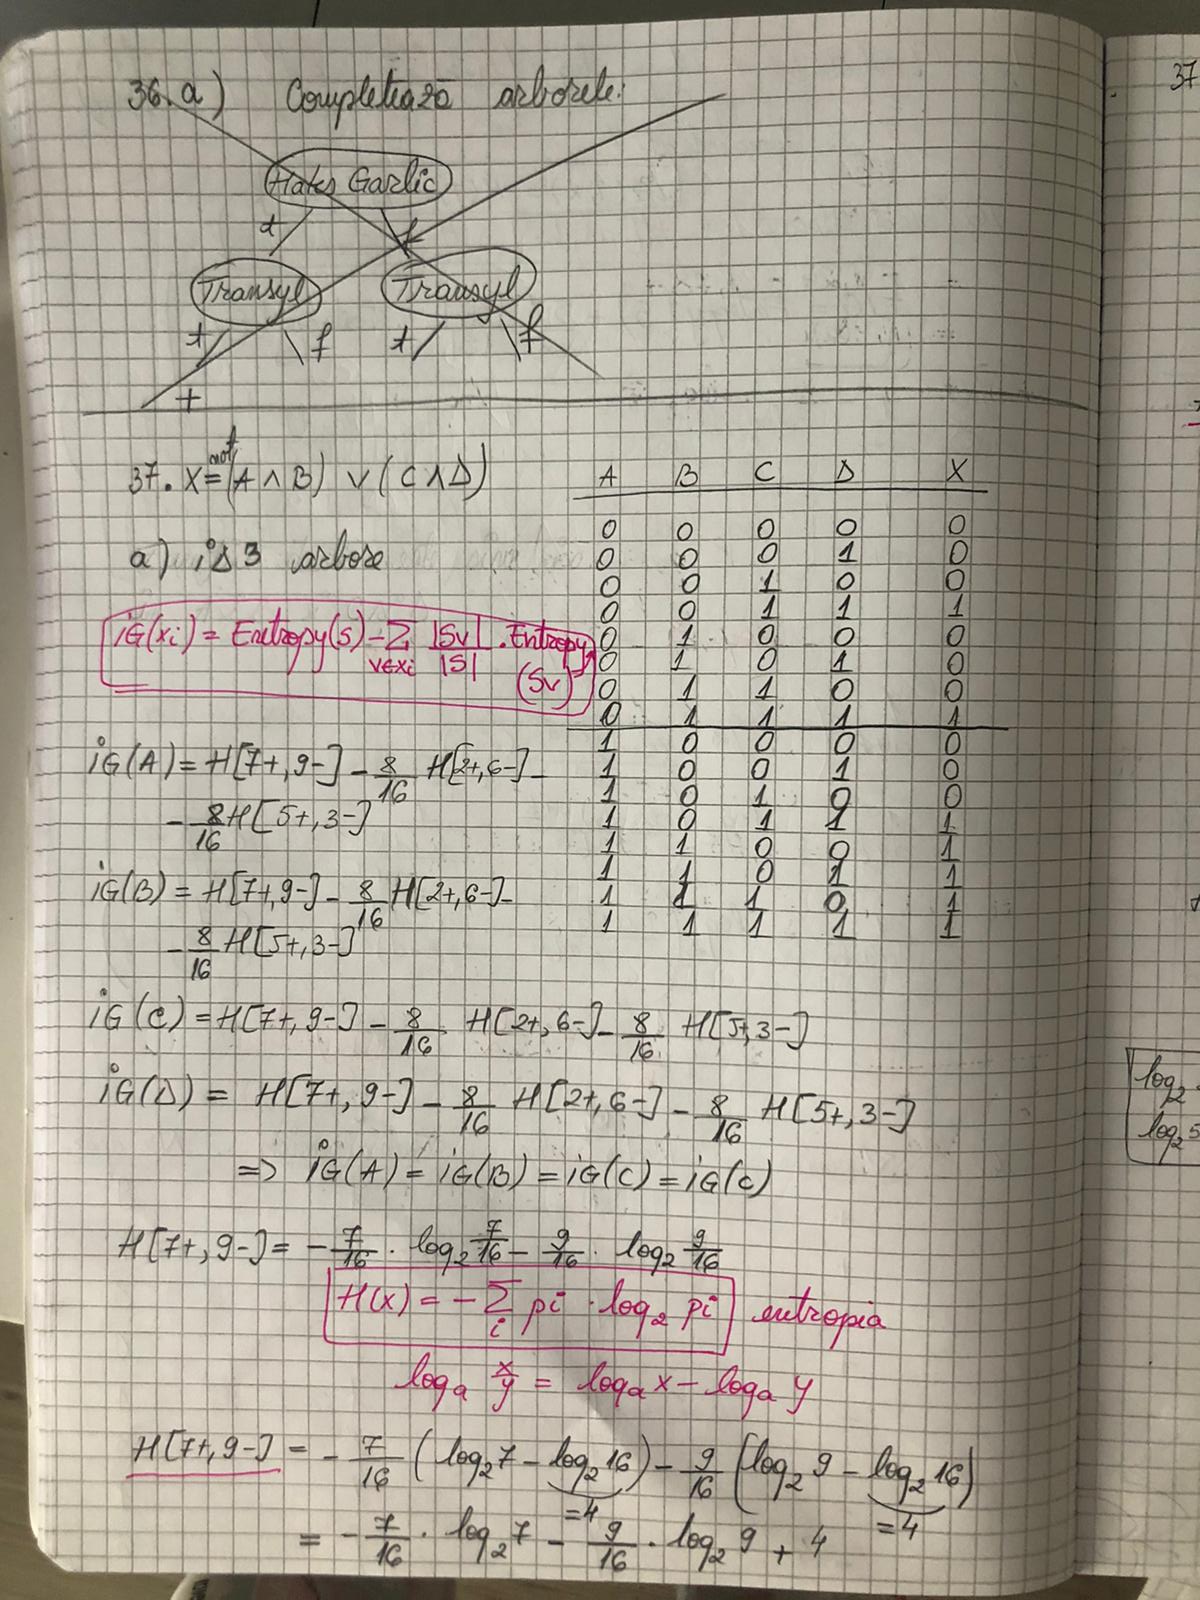 36. a) Completează arborele:
Hates Garlic
t f
Transyl Transyl
t f t f
+
37. X = not (A ∧ B) ∨ (C ∧ Δ)
a) iΔ3 arbore
iG(xi) = Entropy(S) - Σ v∈xi |Sv|/|S| . Entropy (Sv)
A B C Δ X
0 0 0 0 0
0 0 0 1 0
0 0 1 0 0
0 0 1 1 1
0 1 0 0 0
0 1 0 1 0
0 1 1 0 0
0 1 1 1 1
1 0 0 0 0
1 0 0 1 0
1 0 1 0 0
1 0 1 1 1
1 1 0 0 1
1 1 0 1 1
1 1 1 0 1
1 1 1 1 1
iG(A) = H[7+, 9-] - 8/16 H[2+, 6-] -
- 8/16 H[5+, 3-]
iG(B) = H[7+, 9-] - 8/16 H[2+, 6-] -
- 8/16 H[5+, 3-]
iG(C) = H[7+, 9-] - 8/16 . H[2+, 6-] - 8/16 H[5+, 3-]
iG(Δ) = H[7+, 9-] - 8/16 H[2+, 6-] - 8/16 H[5+, 3-]
=> iG(A) = iG(B) = iG(C) = iG(C)
H[7+, 9-] = - 7/16 . log₂ 7/16 - 9/16 . log₂ 9/16
H(x) = - Σ i pi . log₂ pi entropia
logₐ x/y = logₐ x - logₐ y
H[7+, 9-] = - 7/16 (log₂ 7 - log₂ 16) - 9/16 (log₂ 9 - log₂ 16)
=4 =4
= - 7/16 . log₂ 7 - 9/16 . log₂ 9 + 4
37
log₂
log₂ 5